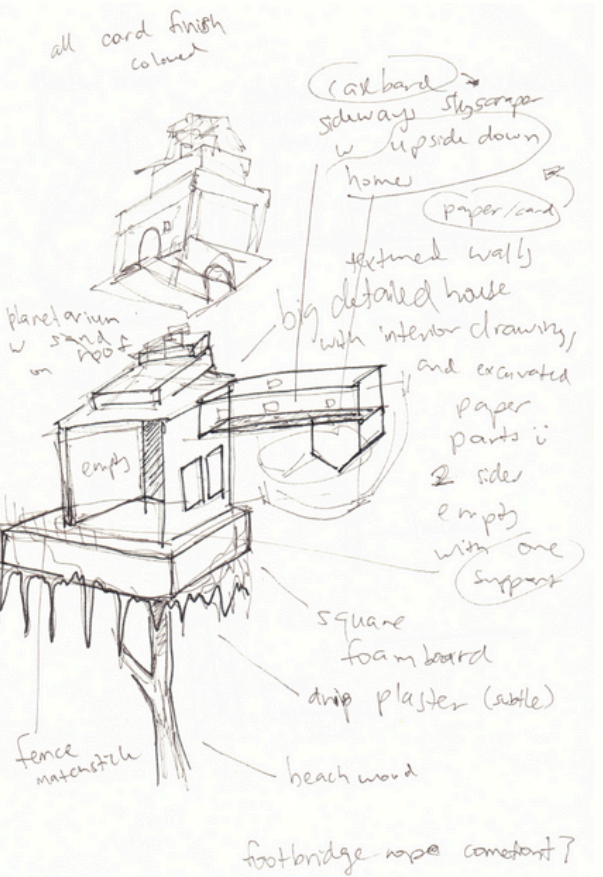 all card finish
coloured
cardboard
sideways skyscraper
w upside down
home
paper/card
textured walls
big detailed house
with interior drawing,
and excavated
paper
parts
2 sides
empty
with one
support
planetarium
w sand
on roof
empty
square
foamboard
drip plaster (subtle)
fence
matchstick
beachwood
footbridge rope